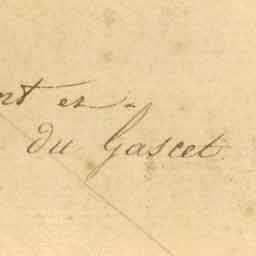 nt es
du Gascet